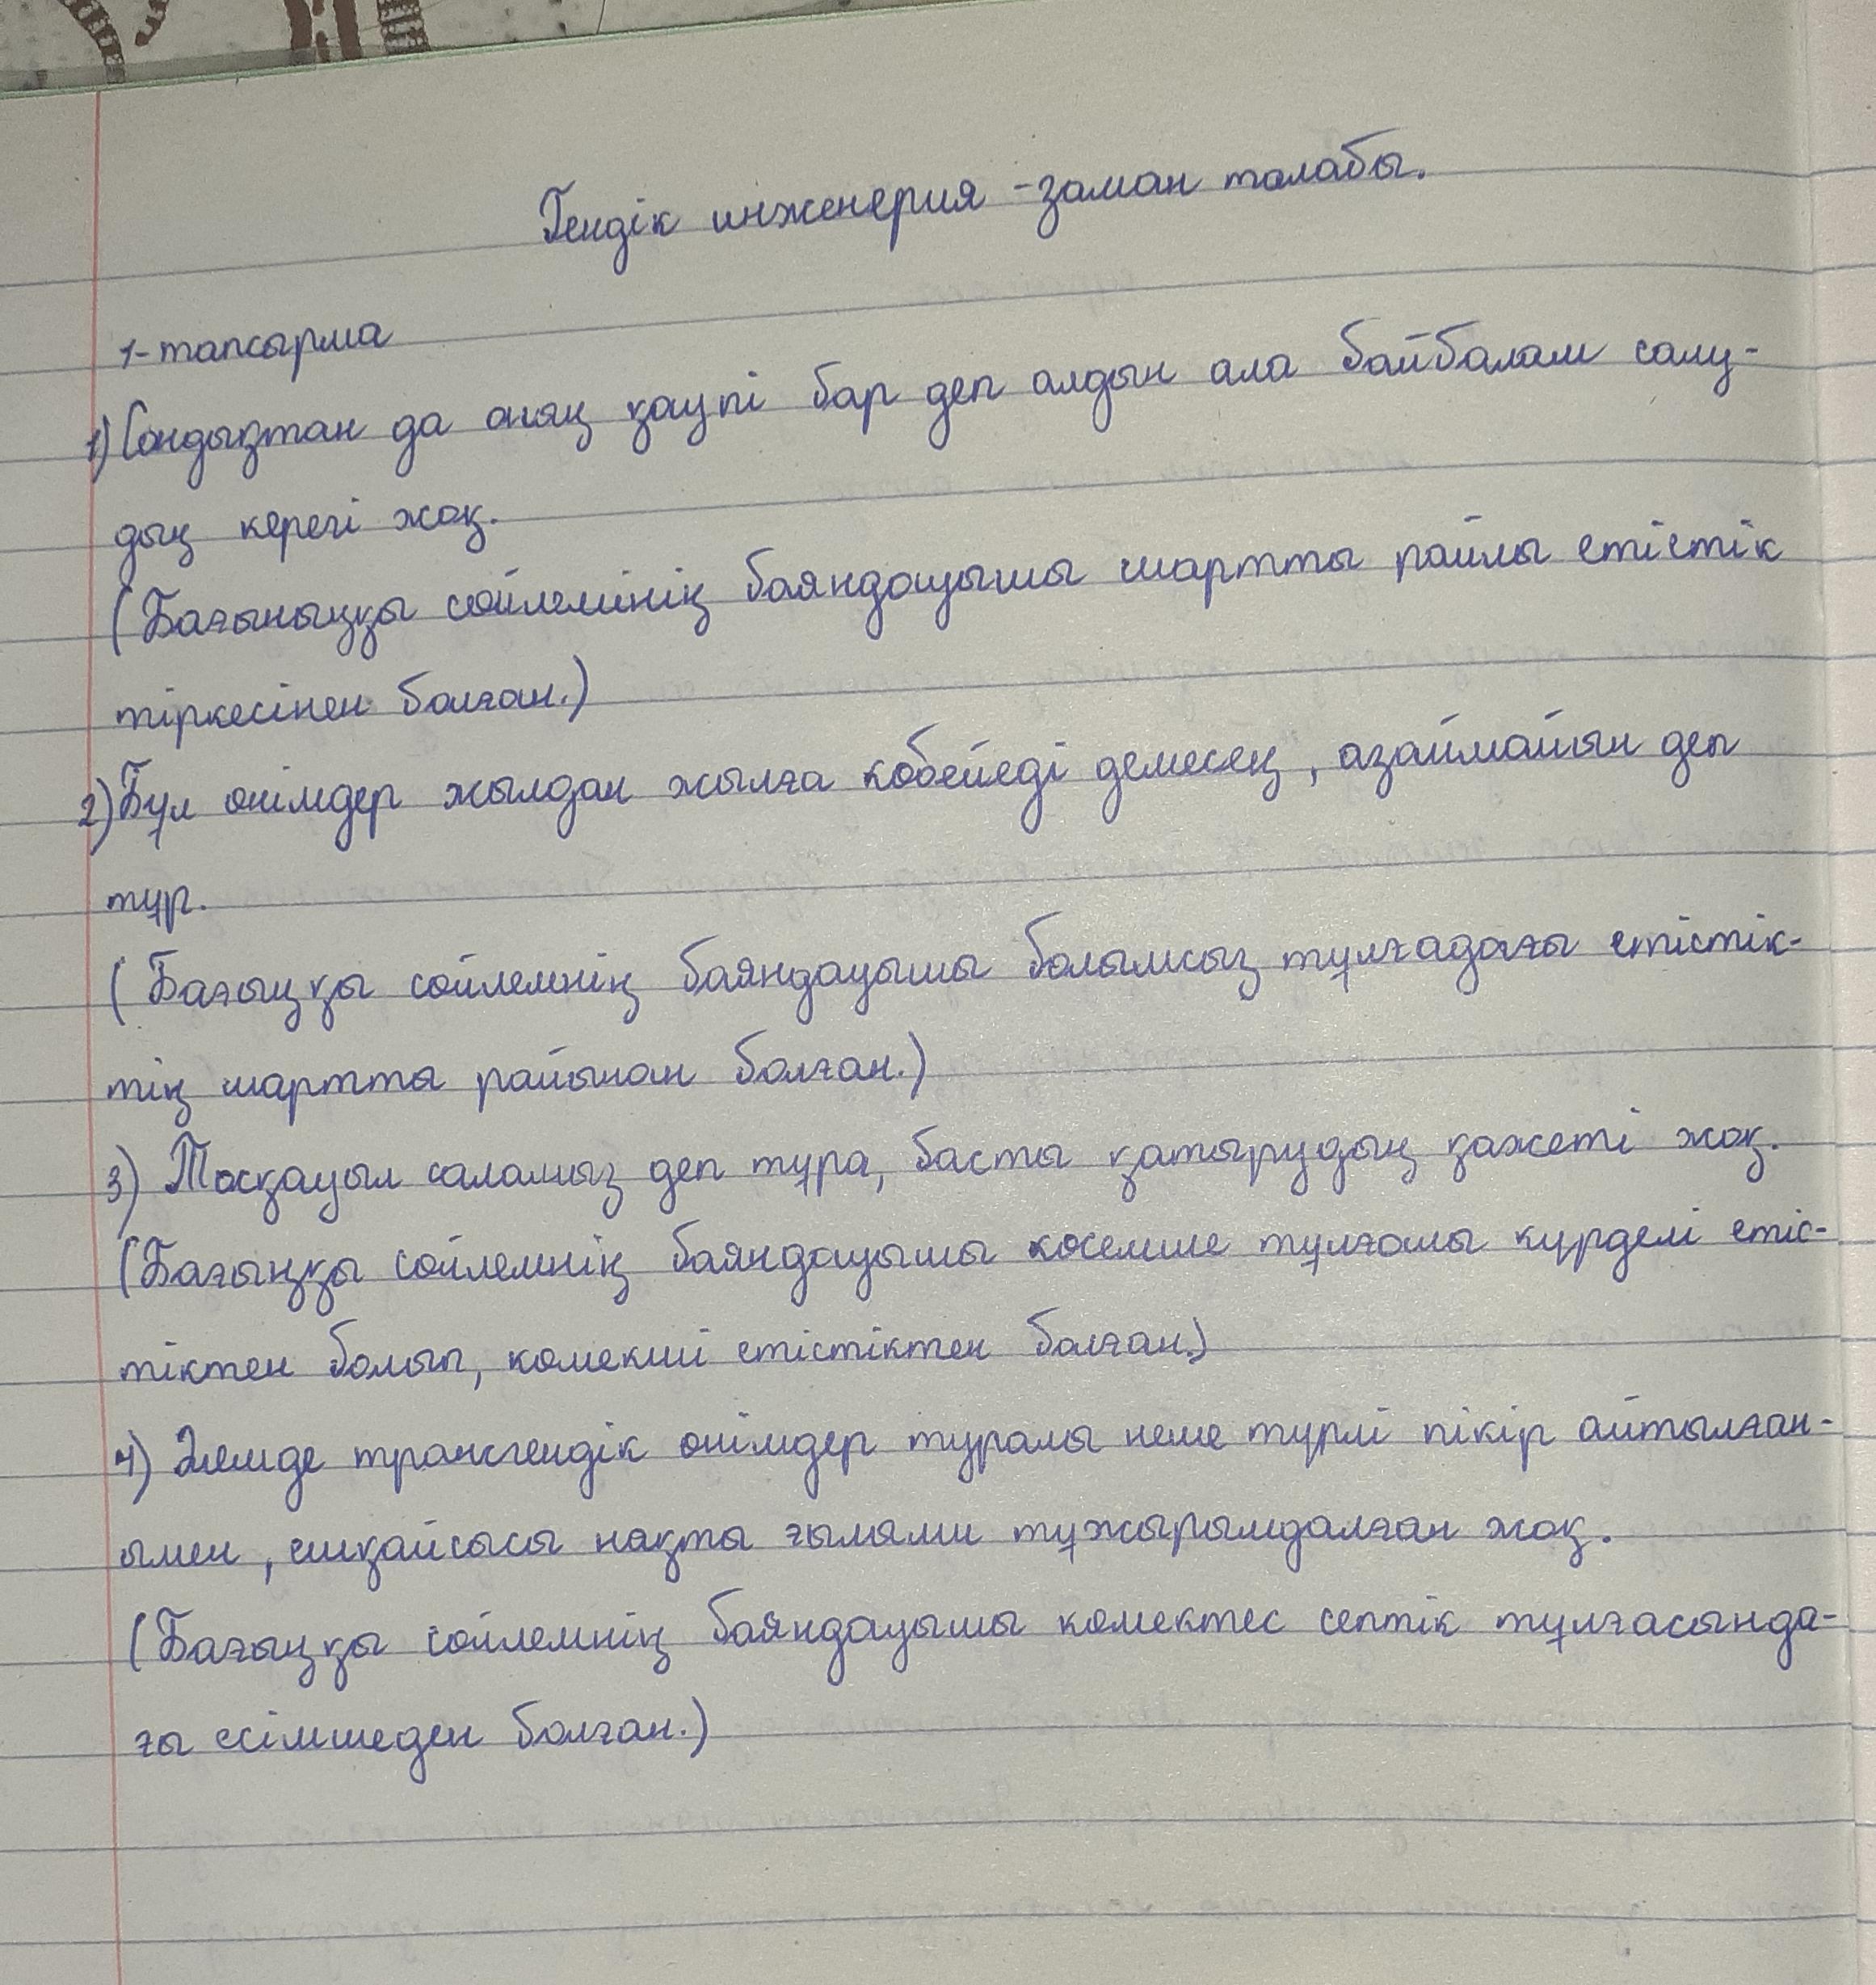 Гендік инженерия - заман талабы.
1-тапсырма
1) Сондықтан да оның қаупі бар деп алдын ала байбалам салу-
дың керегі жоқ.
(Бағыныңқы сөйлемінің баяндауышы шартты райлы етістік
тіркесінен болған.)
2) Бұл өнімдер жылдан жылға көбейеді демесең, азаймайын деп
тұр.
(Бағыңқы сөйлемнің баяндауышы болымсыз тұлғадағы етістік-
тің шартты райынан болған.)
3) Тосқауыл саламыз деп тұра, басты қатырудың қажеті жоқ.
(Бағыңқы сөйлемнің баяндауышы көсемше тұлғалы күрделі етіс-
тіктен болып, көмекші етістіктен болған.)
4) Әлемде трансгендік өнімдер туралы неше түрлі пікір айтылған-
ымен, ешқайсысы нақты ғылыми тұжырымдалған жоқ.
(Бағыңқы сөйлемнің баяндауышы көмектес септік тұлғасында-
ғы есімшеден болған.)